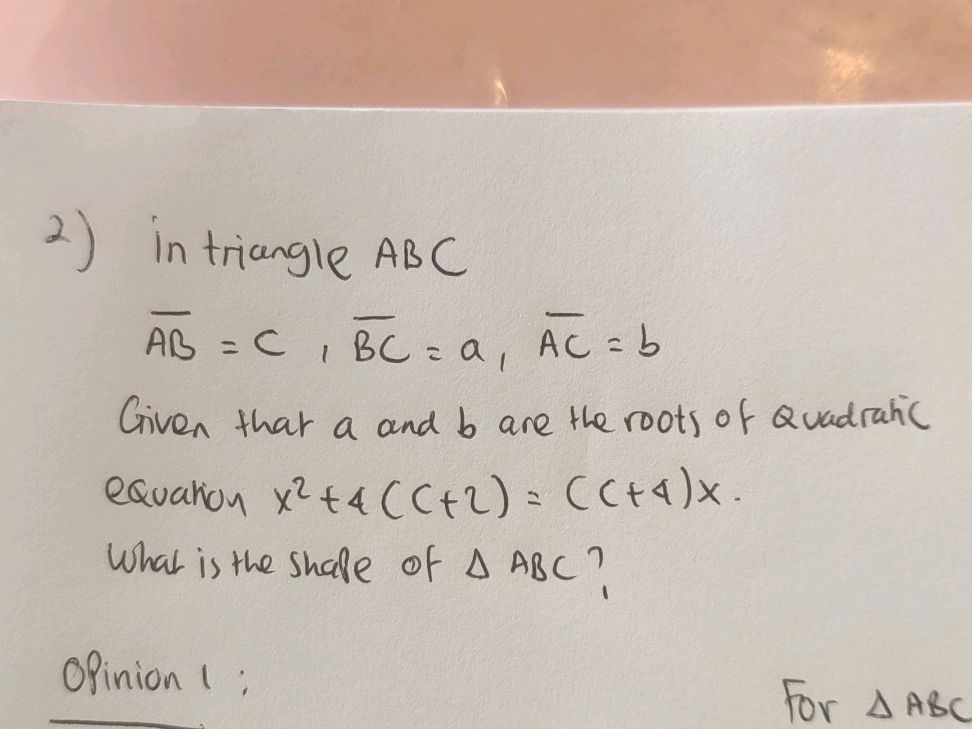 2) in triangle ABC
A̅B̅ = c , B̅C̅ = a, A̅C̅ = b
Given that a and b are the roots of quadratic
equation x² + 4(c+2) = (c+4)x.
What is the shape of Δ ABC?
Opinion 1 :
For Δ ABC